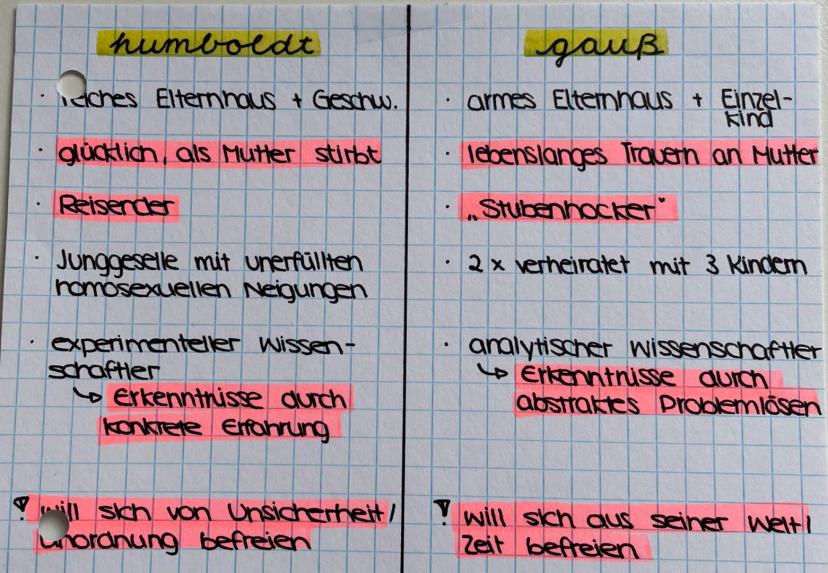 humboldt
· reiches Elternhaus + Geschw.
· glücklich, als Mutter stirbt
· Reisender
· Junggeselle mit unerfüllten
homosexuellen Neigungen
· experimenteller Wissen-
schaftler
↳ Erkenntnisse durch
konkrete Erfahrung
! will sich von Unsicherheit/
Unordnung befreien
gauß
· armes Elternhaus + Einzel-
kind
· lebenslanges Trauern an Mutter
· „Stubenhocker"
· 2 x verheiratet mit 3 Kindern
· analytischer Wissenschaftler
↳ Erkenntnisse durch
abstraktes Problemlösen
! will sich aus seiner Welt/
Zeit befreien